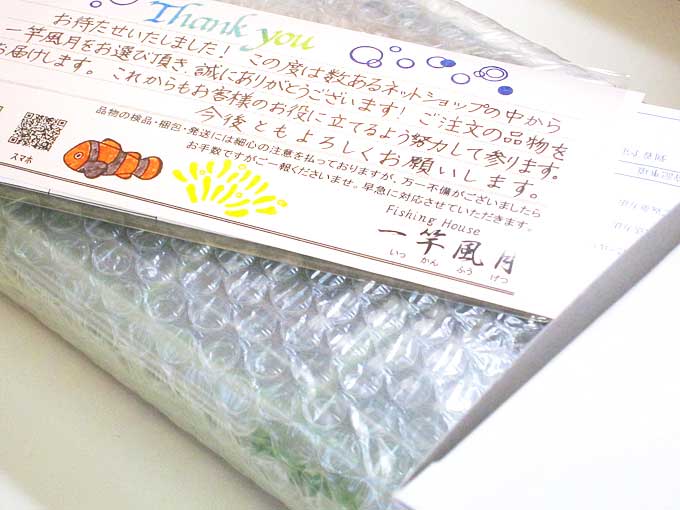 Thank you
お待たせいたしました！ この度は数あるネットショップの中から
一竿風月をお選び頂き、誠にありがとうございます！ ご注文の品物を
お届けします。これからもお客様のお役に立てるよう努力して参ります。
今後ともよろしくお願いします。
品物の検品・梱包・発送には細心の注意を払っておりますが、万一不備がございましたら
お手数ですがご一報くださいませ。早急に対応させていただきます。
スマホ
Fishing House
一竿風月
いっ かん ふう げつ